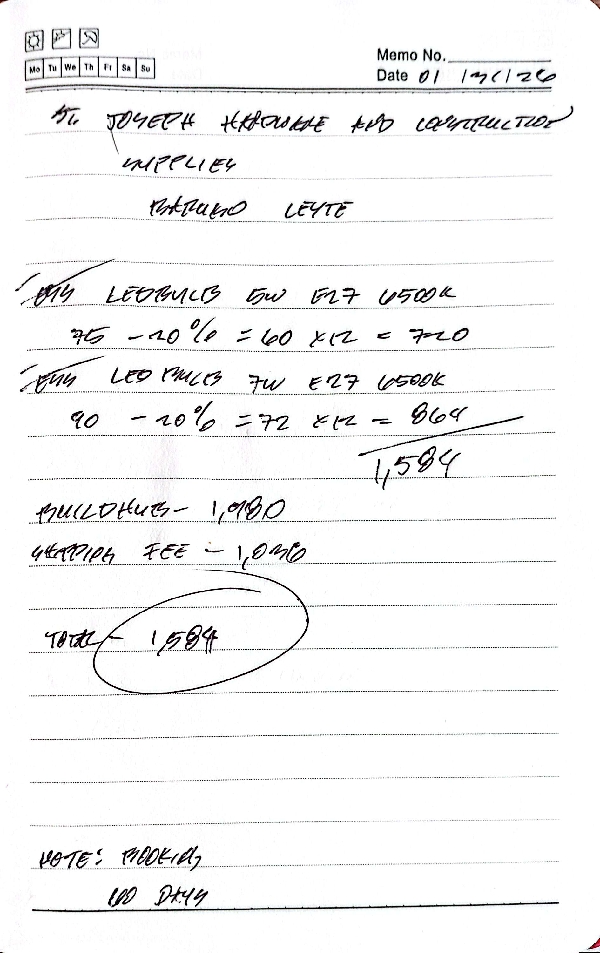 Mo Tu We Th Fr Sa Su
Memo No.
Date 01
ST. JOSEPH HARDWARE AND CONSTRUCTION
SUPPLIES
LEYTE
LED BULB 5W E27 6500K
75 -20% = 60 x12 = 720
LED BULB 7W E27 6500K
90 -20% = 72 x12 = 864
1,584
BUILDHUB - 1,980
FEE - 1,036
TOTAL - 1,584
NOTE: BOOKING
DAYS